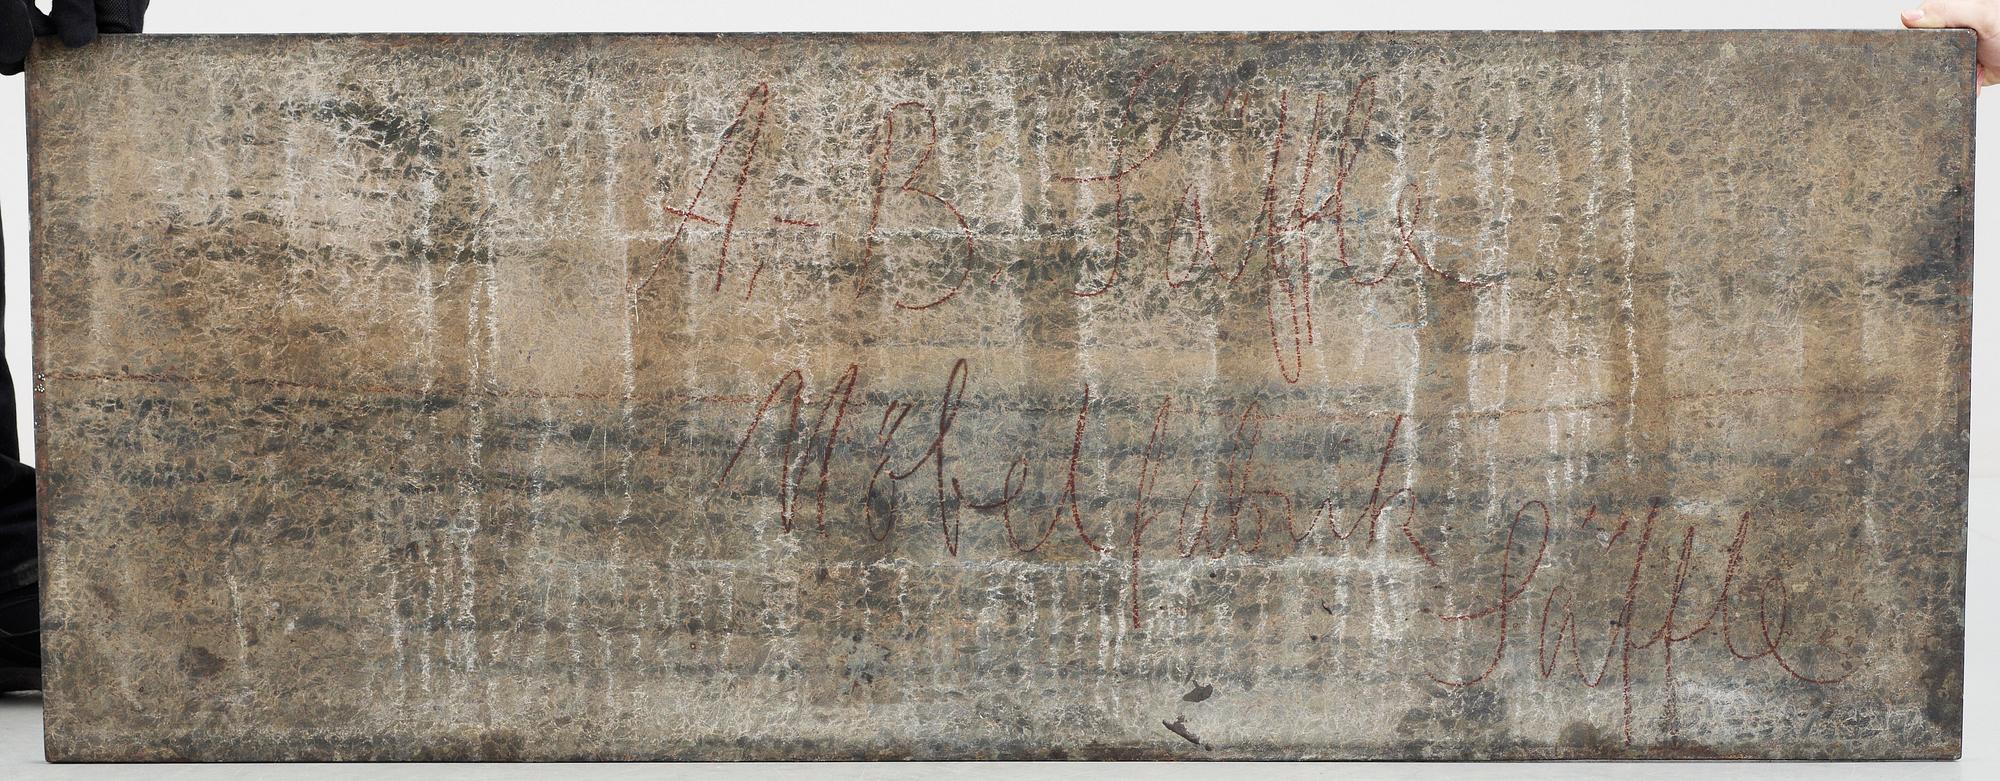 A.-B. Säffle
Möbelfabrik
Säffle